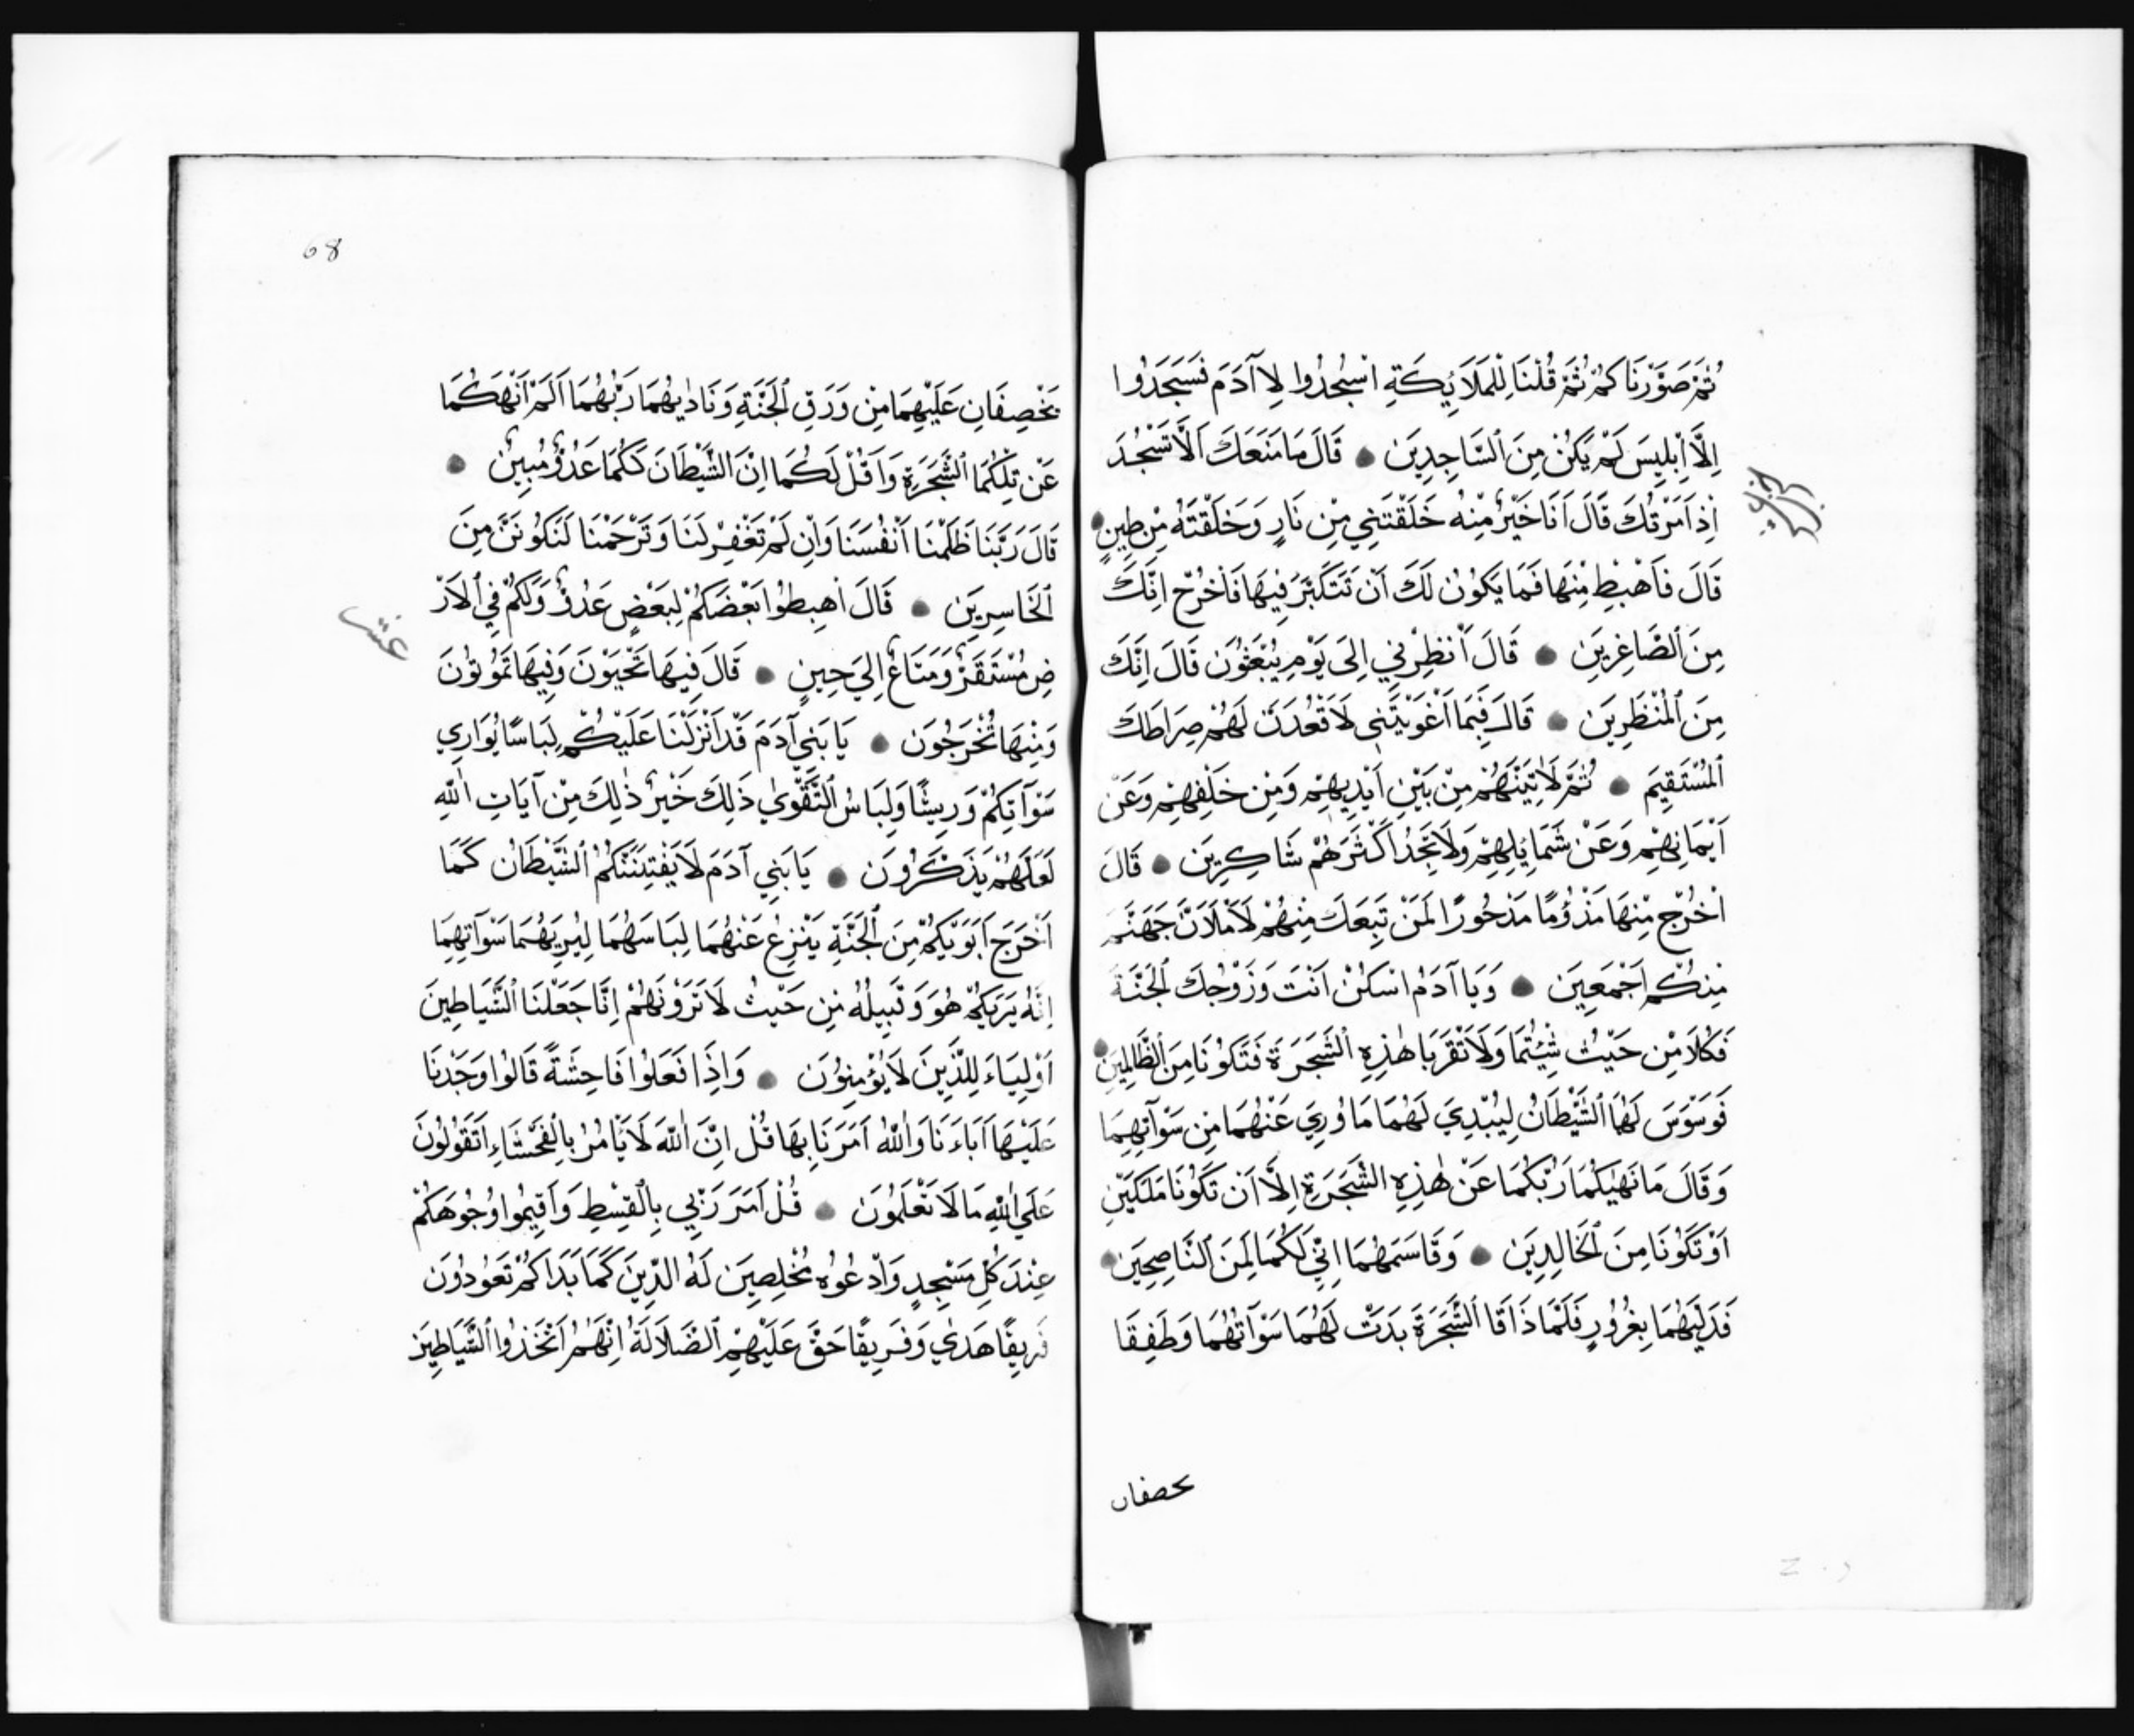 ثُمَّ صَوَّرْنَاكُمْ ثُمَّ قُلْنَا لِلْمَلَائِكَةِ اسْجُدُوا لِاآدَمَ فَسَجَدُوا
اِلَّا اِبْلِيسَ لَمْ يَكُنْ مِنَ السَّاجِدِينَ قَالَ مَا مَنَعَكَ اَلَّا تَسْجُدَ
اِذْ اَمَرْتُكَ قَالَ اَنَا خَيْرٌ مِنْهُ خَلَقْتَنِي مِنْ نَارٍ وَخَلَقْتَهُ مِنْ طِينٍ
قَالَ فَاهْبِطْ مِنْهَا فَمَا يَكُونُ لَكَ اَنْ تَتَكَبَّرَ فِيهَا فَاخْرُجْ اِنَّكَ
مِنَ الصَّاغِرِينَ قَالَ اَنْظِرْنِي اِلَى يَوْمِ يُبْعَثُونَ قَالَ اِنَّكَ
مِنَ الْمُنْظَرِينَ قَالَ فَبِمَا اَغْوَيْتَنِي لَاَقْعُدَنَّ لَهُمْ صِرَاطَكَ
الْمُسْتَقِيمَ ثُمَّ لَاٰتِيَنَّهُمْ مِنْ بَيْنِ اَيْدِيهِمْ وَمِنْ خَلْفِهِمْ وَعَنْ
اَيْمَانِهِمْ وَعَنْ شَمَايِلِهِمْ وَلَا تَجِدُ اَكْثَرَهُمْ شَاكِرِينَ قَالَ
اخْرُجْ مِنْهَا مَذْؤُمًا مَدْحُورًا لَمَنْ تَبِعَكَ مِنْهُمْ لَاَمْلَاَنَّ جَهَنَّمَ
مِنْكُمْ اَجْمَعِينَ وَيَا آدَمُ اسْكُنْ اَنْتَ وَزَوْجُكَ الْجَنَّةَ
فَكُلَا مِنْ حَيْثُ شِئْتُمَا وَلَا تَقْرَبَا هٰذِهِ الشَّجَرَةَ فَتَكُونَا مِنَ الظَّالِمِينَ
فَوَسْوَسَ لَهُمَا الشَّيْطَانُ لِيُبْدِيَ لَهُمَا مَا وُرِيَ عَنْهُمَا مِنْ سَوْآتِهِمَا
وَقَالَ مَا نَهٰيكُمَا رَبُّكُمَا عَنْ هٰذِهِ الشَّجَرَةِ اِلَّا اَنْ تَكُونَا مَلَكَيْنِ
اَوْ تَكُونَا مِنَ الْخَالِدِينَ وَقَاسَمَهُمَا اِنِّي لَكُمَا لَمِنَ النَّاصِحِينَ
فَدَلّٰيهُمَا بِغُرُورٍ فَلَمَّا ذَاقَا الشَّجَرَةَ بَدَتْ لَهُمَا سَوْآتُهُمَا وَطَفِقَا
يحصفان
68
يَخْصِفَانِ عَلَيْهِمَا مِنْ وَرَقِ الْجَنَّةِ وَنَادٰيهُمَا رَبُّهُمَا اَلَمْ اَنْهَكُمَا
عَنْ تِلْكُمَا الشَّجَرَةِ وَاَقُلْ لَكُمَا اِنَّ الشَّيْطَانَ لَكُمَا عَدُوٌّ مُبِينٌ
قَالَ رَبَّنَا ظَلَمْنَا اَنْفُسَنَا وَاِنْ لَمْ تَغْفِرْ لَنَا وَتَرْحَمْنَا لَنَكُونَنَّ مِنَ
الْخَاسِرِينَ قَالَ اهْبِطُوا بَعْضُكُمْ لِبَعْضٍ عَدُوٌّ وَلَكُمْ فِي الْاَرْ
ضِ مُسْتَقَرٌّ وَمَتَاعٌ اِلَي حِينٍ قَالَ فِيهَا تَحْيَوْنَ وَفِيهَا تَمُوتُونَ
عشر
وَمِنْهَا تُخْرَجُونَ يَا بَنِي آدَمَ قَدْ اَنْزَلْنَا عَلَيْكُمْ لِبَاسًا يُوَارِي
سَوْآتِكُمْ وَرِيشًا وَلِبَاسُ التَّقْوٰي ذَلِكَ خَيْرٌ ذٰلِكَ مِنْ آيَاتِ اللّٰهِ
لَعَلَّهُمْ يَذَّكَّرُونَ يَا بَنِي آدَمَ لَا يَفْتِنَنَّكُمُ الشَّيْطَانُ كَمَا
اَخْرَجَ اَبَوَيْكُمْ مِنَ الْجَنَّةِ يَنْزِعُ عَنْهُمَا لِبَاسَهُمَا لِيُرِيَهُمَا سَوْآتِهِمَا
اِنَّهُ يَرَيكُمْ هُوَ وَقَبِيلُهُ مِنْ حَيْثُ لَا تَرَوْنَهُمْ اِنَّا جَعَلْنَا الشَّيَاطِينَ
اَوْلِيَاءَ لِلَّذِينَ لَا يُؤْمِنُونَ وَاِذَا فَعَلُوا فَاحِشَةً قَالُوا وَجَدْنَا
عَلَيْهَا اَابَاءَنَا وَاللّٰهُ اَمَرَنَا بِهَا قُلْ اِنَّ اللّٰهَ لَا يَاْمُرُ بِالْفَحْشَاءِ اَتَقُولُونَ
عَلَي اللّٰهِ مَا لَا تَعْلَمُونَ قُلْ اَمَرَ رَبِّي بِالْقِسْطِ وَاَقِيمُوا وُجُوهَكُمْ
عِنْدَ كُلِّ مَسْجِدٍ وَادْعُوهُ مُخْلِصِينَ لَهُ الدِّينَ كَمَا بَدَاَكُمْ تَعُودُونَ
فَرِيقًا هَدٰي وَفَرِيقًا حَقَّ عَلَيْهِمُ الضَّلَالَةُ اِنَّهُمُ اتَّخَذُوا الشَّيَاطِينَ